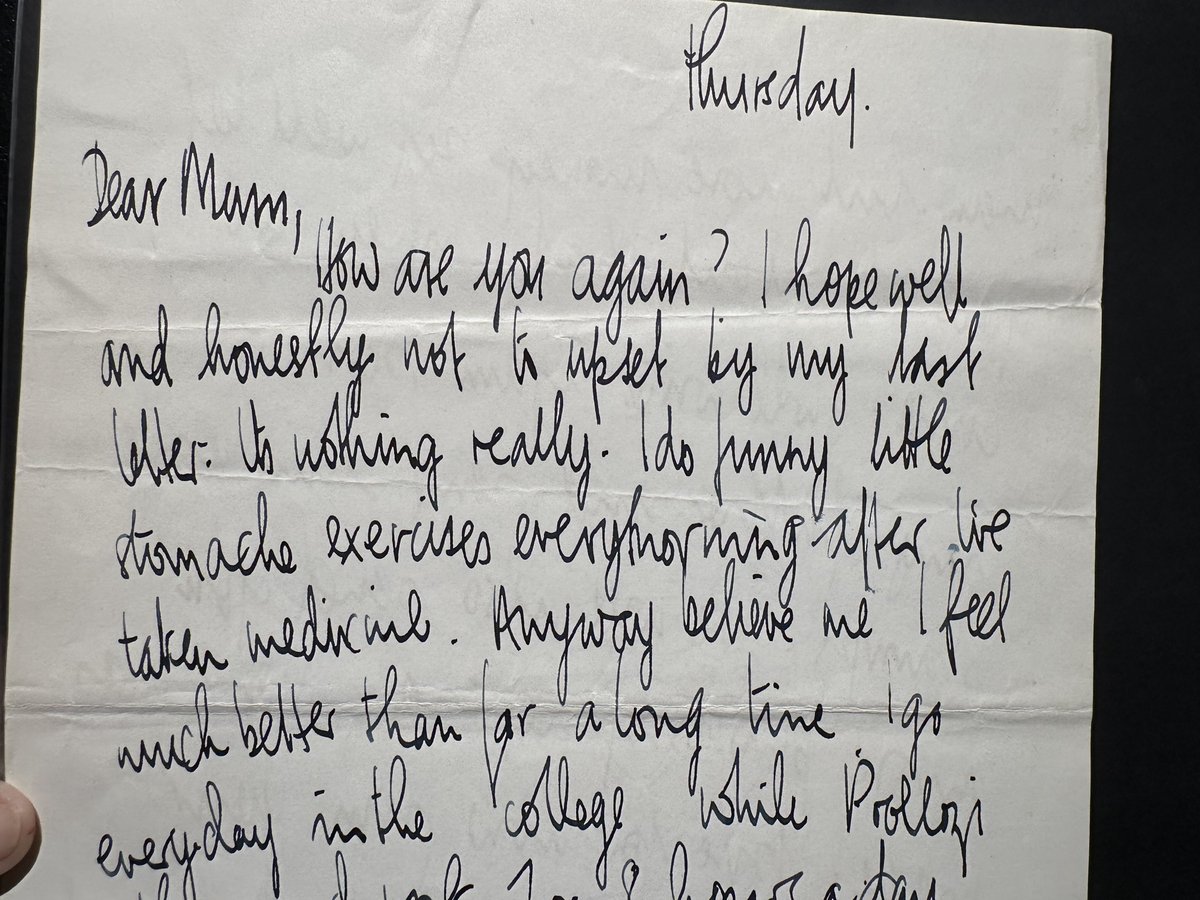 Thursday.
Dear Mum,
How are you again? I hope well
and honestly not to upset by my last
letter. Its nothing really. I do funny little
stomache exercises everymorning after I've
taken medicine. Anyway believe me I feel
much better than for a long time I go
everyday in the college while
hours a day